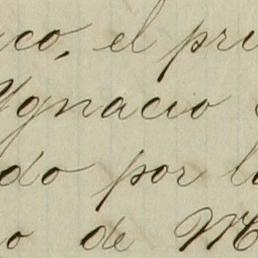 ico, el pri
Ygnacio
do por l
o de M